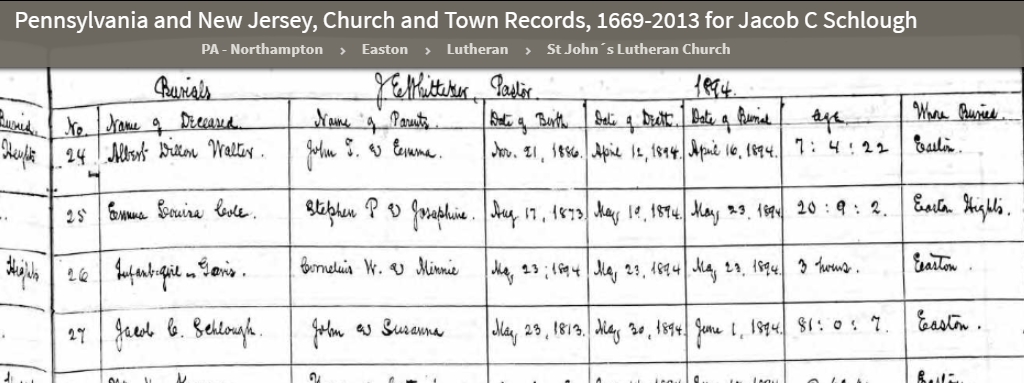 Pennsylvania and New Jersey, Church and Town Records, 1669-2013 for Jacob C Schlough
PA - Northampton > Easton > Lutheran > St John´s Lutheran Church
Burials J E Whitteker, Pastor. 1894.
Buried. No. Name of Deceased. Name of Parents. Date of Birth Date of Death. Date of Burial age Where Buried.
Heights 24 Albert Dillon Walter. John T. & Emma. Nov. 21, 1886. April 12, 1894. April 16, 1894. 7 : 4 : 22 Easton.
25 Emma Louisa Cole. Stephen P & Josephine. Aug 17, 1873. May 19, 1894. May 23, 1894 20 : 9 : 2. Easton Hights.
Hights 26 Infant-girl - Davis. Cornelius W. & Minnie May 23, 1894 May 23, 1894. May 23, 1894. 3 hours. Easton.
27 Jacob C. Schlough. John & Susanna May 23, 1813. May 30, 1894. June 1, 1894. 81 : 0 : 7. Easton.